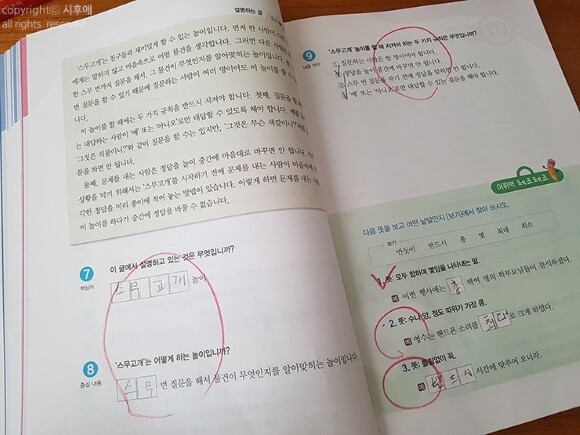 copyright© 시후애
all rights reserved
설명하는 글
'스무고개'는 친구들과 재미있게 할 수 있는 놀이입니다. 먼저 한 사람이 다른
에게는 말하지 않고 마음속으로 어떤 물건을 생각합니다. 그러면 다른 사람
한 스무 번까지 질문을 해서, 그 물건이 무엇인지를 알아맞히는 놀이입니다.
번 질문을 할 수 있기 때문에 질문하는 사람이 여러 명이어도 이 놀이를 할 수
다.
이 놀이를 할 때에는 두 가지 규칙을 반드시 지켜야 합니다. 첫째, 질문을
는 대답하는 사람이 '예' 또는 '아니오'로만 대답할 수 있도록 해야 합니다. 예를
'그것은 식물이니?'와 같이 질문을 할 수는 있지만, '그것은 무슨 색깔이니?'
문을 하면 안 됩니다.
둘째, 문제를 내는 사람은 정답을 놀이 중간에 마음대로 바꾸면 안 됩니다.
상황을 막기 위해서는 '스무고개'를 시작하기 전에 문제를 내는 사람이 마음속에
각한 정답을 미리 종이에 적어 놓는 방법이 있습니다. 이렇게 하면 문제를 내는
이 놀이를 하다가 중간에 정답을 바꿀 수 없습니다.
7 이 글에서 설명하고 있는 것은 무엇입니까?
핵심어
스무고개 놀이
8 '스무고개'는 어떻게 하는 놀이입니까?
중심 내용
스무 번 질문을 해서 물건이 무엇인지를 알아맞히는 놀이입니다.
9 '스무고개' 놀이를 할 때 지켜야 하는 두 가지 규칙은 무엇입니까?
내용 파악
① 질문하는 사람은 한 명이어야 합니다.
정답을 놀이 중간에 바꾸면 안 됩니다.
③ 스무 번 질문을 하기 전에 정답을 맞히면 안 됩니다.
'예' 또는 '아니오'로만 대답할 수 있는 질문을 해야 합니다.
어휘력 체크체크
다음 뜻을 보고 어떤 낱말인지 [보기]에서 찾아 쓰시오.
보기
반듯이 반드시 총 몇 최대 최소
1. 뜻: 모두 합하여 몇임을 나타내는 말.
예 이번 행사에는 총 백여 명의 학부모님들이 참석하셨다.
2. 뜻: 수나 양, 정도 따위가 가장 큼.
예 영수는 핸드폰 소리를 최대로 크게 하였다.
3. 뜻: 틀림없이 꼭.
예 반드시 시간에 맞추어 오너라.